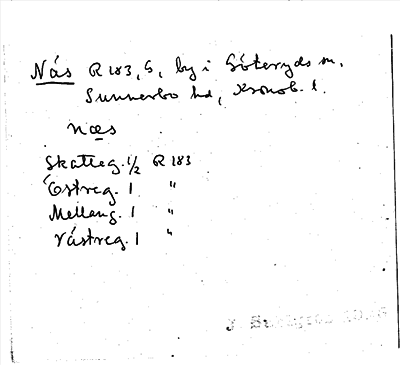 Näs R 183, S, by i Göteryds sn,
Sunnerbo hd, Kronob. l.
næs
Skatteg. 1/2 R 183
Östreg. 1 "
Mellang. 1 "
Västreg. 1 "